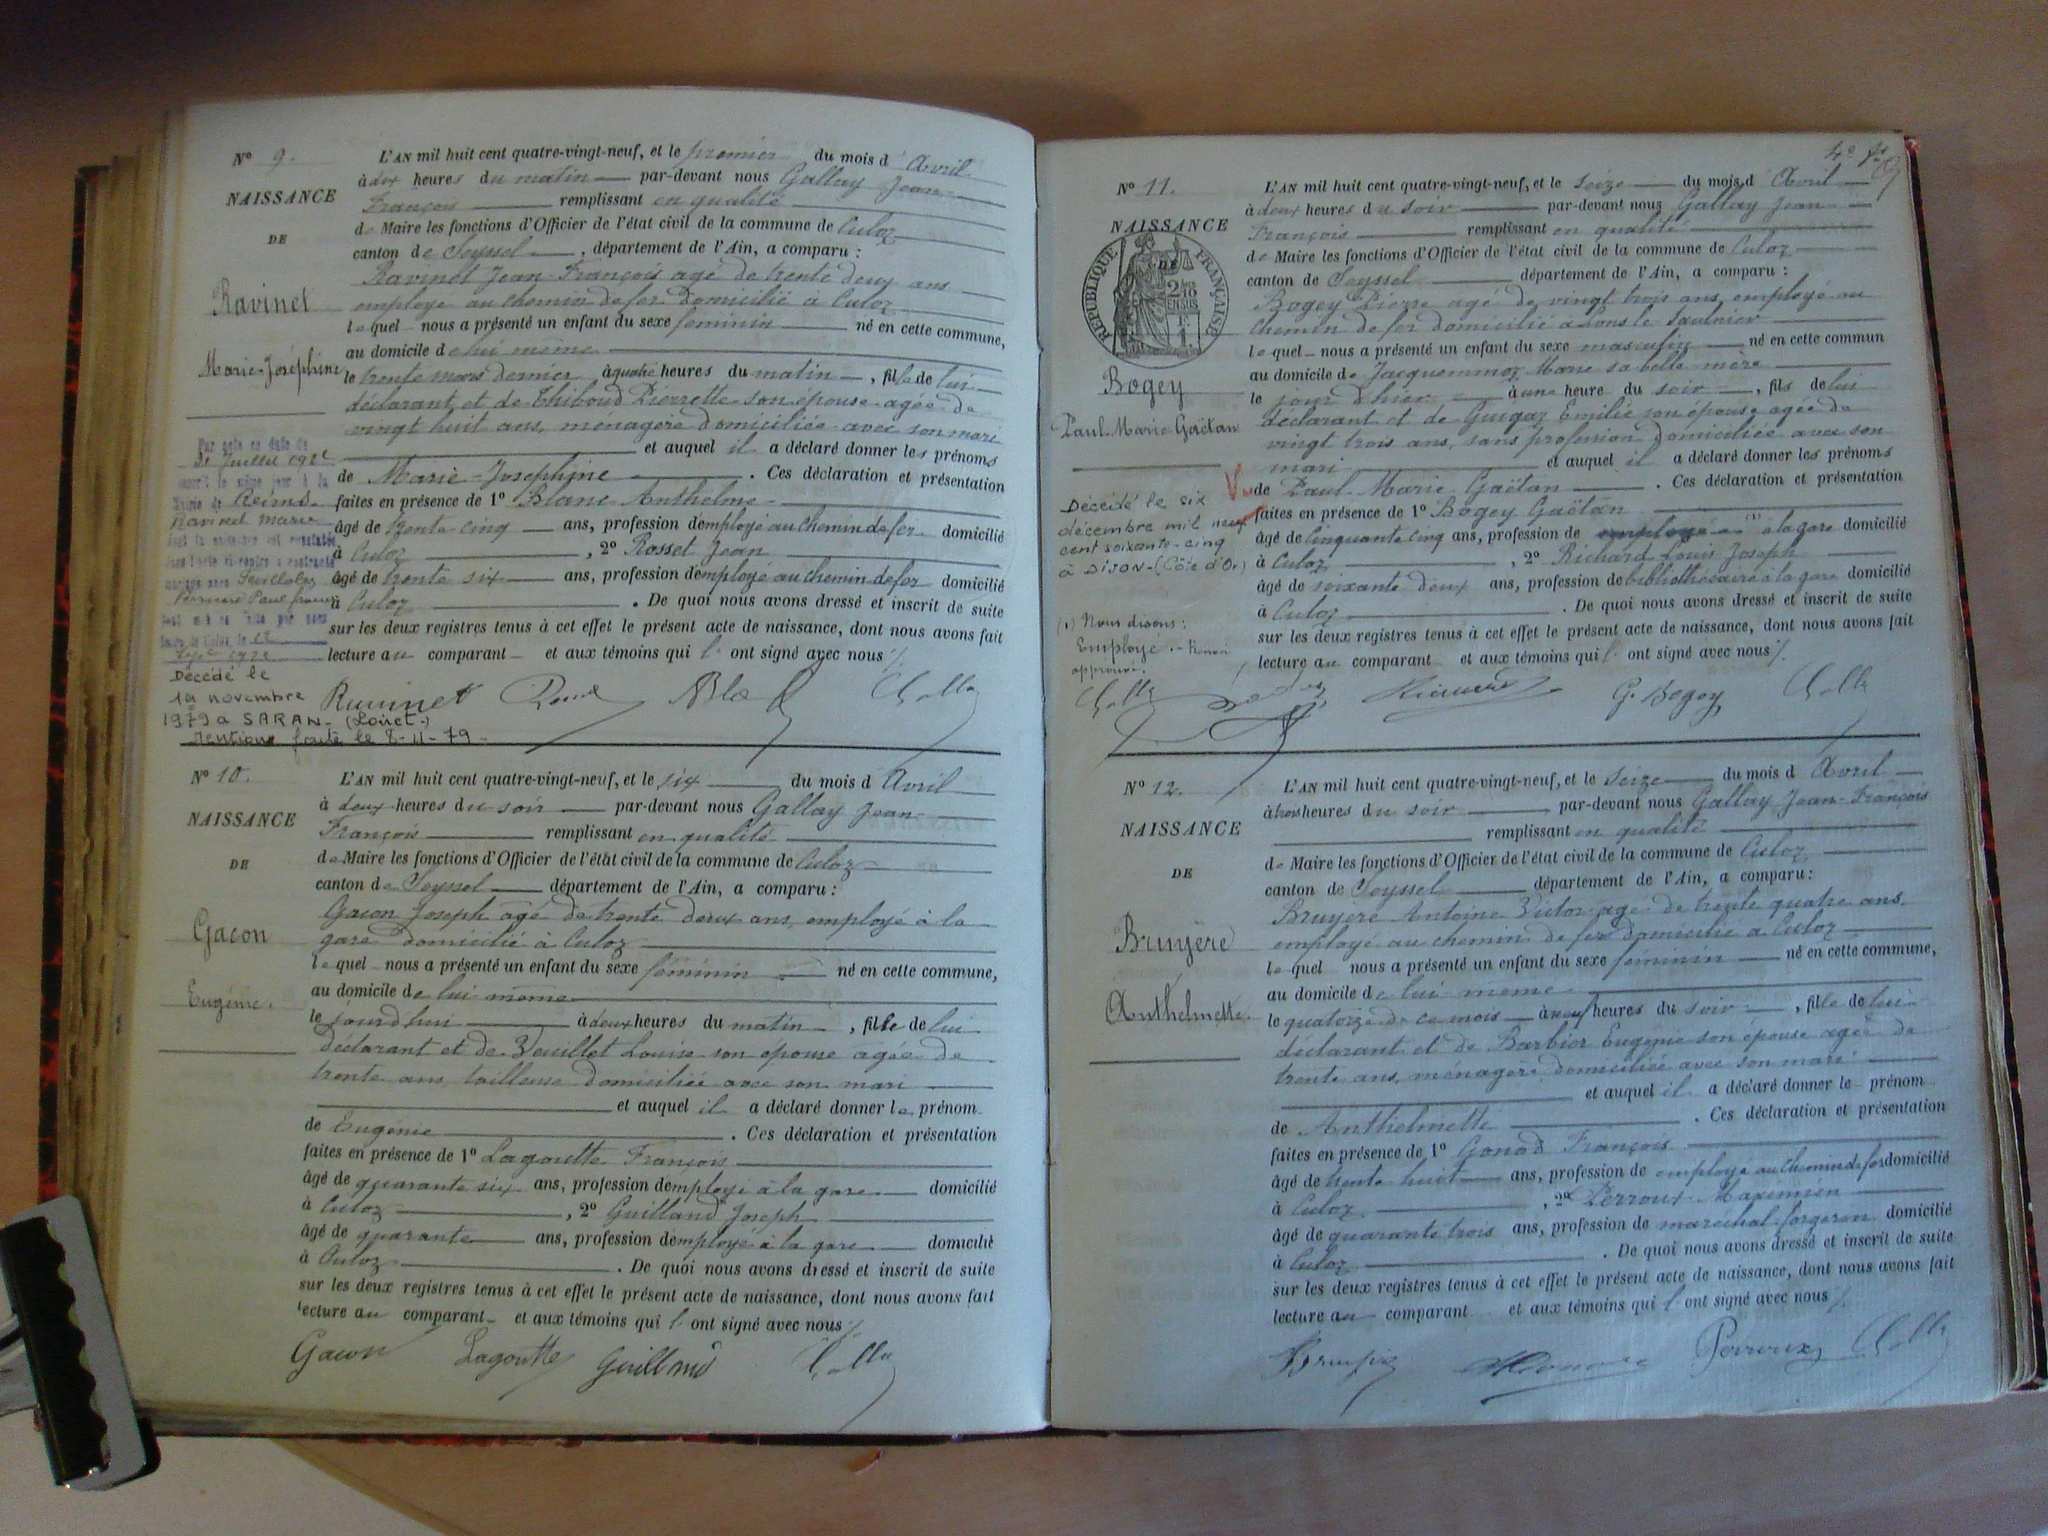 N° 9.
NAISSANCE
DE
Ravinet
Marie-Joséphine
L'AN mil huit cent quatre-vingt-neuf, et le premier du mois d'Avril
à dix heures du matin par-devant nous Gallay Jean
François remplissant en qualité
de Maire les fonctions d'Officier de l'état civil de la commune de Culoz
canton de Seyssel, département de l'Ain, a comparu :
Ravinet Jean-François agé de trente deux ans
employé au chemin de fer domicilié à Culoz
lequel nous a présenté un enfant du sexe feminin né en cette commune,
au domicile de lui même
le trente mars dernier à quatre heures du matin, fille de lui
déclarant et de Thiboud Pierrette son épouse agée de
vingt huit ans, menagère domiciliée avec son mari
et auquel il a déclaré donner les prénoms
de Marie-Josephine. Ces déclaration et présentation
faites en présence de 1° Blanc Anthelme
âgé de trente cinq ans, profession d'employé au chemin de fer domicilié
à Culoz, 2° Rosset Jean
âgé de trente six ans, profession d'employé au chemin de fer domicilié
à Culoz. De quoi nous avons dressé et inscrit de suite
sur les deux registres tenus à cet effet le présent acte de naissance, dont nous avons fait
lecture au comparant et aux témoins qui l'ont signé avec nous
Par acte en date du
Juillet
Mairie de Reims
Ravinet Marie
Paul
Décédé le
1er novembre
1979 à SARAN - (Loiret-)
Mention faite le 8-11-79-
Ravinet
N° 10.
NAISSANCE
DE
Gacon
Eugénie.
L'AN mil huit cent quatre-vingt-neuf, et le six du mois d'Avril
à deux heures du soir par-devant nous Gallay Jean
François remplissant en qualité
de Maire les fonctions d'Officier de l'état civil de la commune de Culoz
canton de Seyssel département de l'Ain, a comparu :
Gacon Joseph agé de trente deux ans, employé à la
gare domicilié à Culoz
lequel nous a présenté un enfant du sexe féminin né en cette commune,
au domicile de lui même
le jourd'hui à deux heures du matin, fille de lui
déclarant et de Veuillet Louise son épouse agée de
trente ans, tailleuse domiciliée avec son mari
et auquel il a déclaré donner le prénom
de Eugénie. Ces déclaration et présentation
faites en présence de 1° Lagoutte François
âgé de quarante six ans, profession d'employé à la gare domicilié
à Culoz, 2° Guilland Joseph
âgé de quarante ans, profession d'employé à la gare domicilié
à Culoz. De quoi nous avons dressé et inscrit de suite
sur les deux registres tenus à cet effet le présent acte de naissance, dont nous avons fait
lecture au comparant et aux témoins qui l'ont signé avec nous
Gacon Lagoutte Guilland
N° 11.
NAISSANCE
DE
RÉPUBLIQUE FRANÇAISE
Bogey
Paul-Marie-Gaëtan
L'AN mil huit cent quatre-vingt-neuf, et le seize du mois d'Avril
à deux heures du soir par-devant nous Gallay Jean
François remplissant en qualité
de Maire les fonctions d'Officier de l'état civil de la commune de Culoz
canton de Seyssel département de l'Ain, a comparu :
Bogey Pierre agé de vingt trois ans, employé au
chemin de fer domicilié à Lons le Saulnier
lequel nous a présenté un enfant du sexe masculin né en cette commun
au domicile de Jacquemmoz Marie sa belle mère
le jour d'hier à une heure du soir, fils de lui
déclarant et de Guigaz Emilie son épouse agée de
vingt trois ans, sans profession domiciliée avec son
mari et auquel il a déclaré donner les prénoms
de Paul-Marie-Gaëtan. Ces déclaration et présentation
faites en présence de 1° Bogey Gaëtan
âgé de cinquante cinq ans, profession de employé (1) à la gare domicilié
à Culoz, 2° Richard Louis Joseph
âgé de soixante deux ans, profession de bibliothécaire à la gare domicilié
à Culoz. De quoi nous avons dressé et inscrit de suite
sur les deux registres tenus à cet effet le présent acte de naissance, dont nous avons fait
lecture au comparant et aux témoins qui l'ont signé avec nous
Décédé le six
décembre mil neuf
cent soixante-cinq
à DIJON-(Côte d'Or)
(1) Nous disons:
Employé. - Renvoi
approuvé.
G. Bogey
N° 12.
NAISSANCE
DE
Bruyère
Anthelmette
L'AN mil huit cent quatre-vingt-neuf, et le seize du mois d'Avril
à trois heures du soir par-devant nous Gallay Jean-François
remplissant en qualité
de Maire les fonctions d'Officier de l'état civil de la commune de Culoz
canton de Seyssel département de l'Ain, a comparu :
Bruyère Antoine Victor agé de trente quatre ans
employé au chemin de fer domicilié à Culoz
lequel nous a présenté un enfant du sexe féminin né en cette commune,
au domicile de lui même
le quatorze de ce mois à neuf heures du soir, fille de lui
déclarant et de Barbier Eugénie son épouse agée de
trente ans, menagère domiciliée avec son mari
et auquel il a déclaré donner le prénom
de Anthelmette. Ces déclaration et présentation
faites en présence de 1° Gonod François
âgé de trente huit ans, profession de employé au chemin de fer domicilié
à Culoz, 2° Perroux Maximien
âgé de quarante trois ans, profession de maréchal-forgeron domicilié
à Culoz. De quoi nous avons dressé et inscrit de suite
sur les deux registres tenus à cet effet le présent acte de naissance, dont nous avons fait
lecture au comparant et aux témoins qui l'ont signé avec nous
Perroux